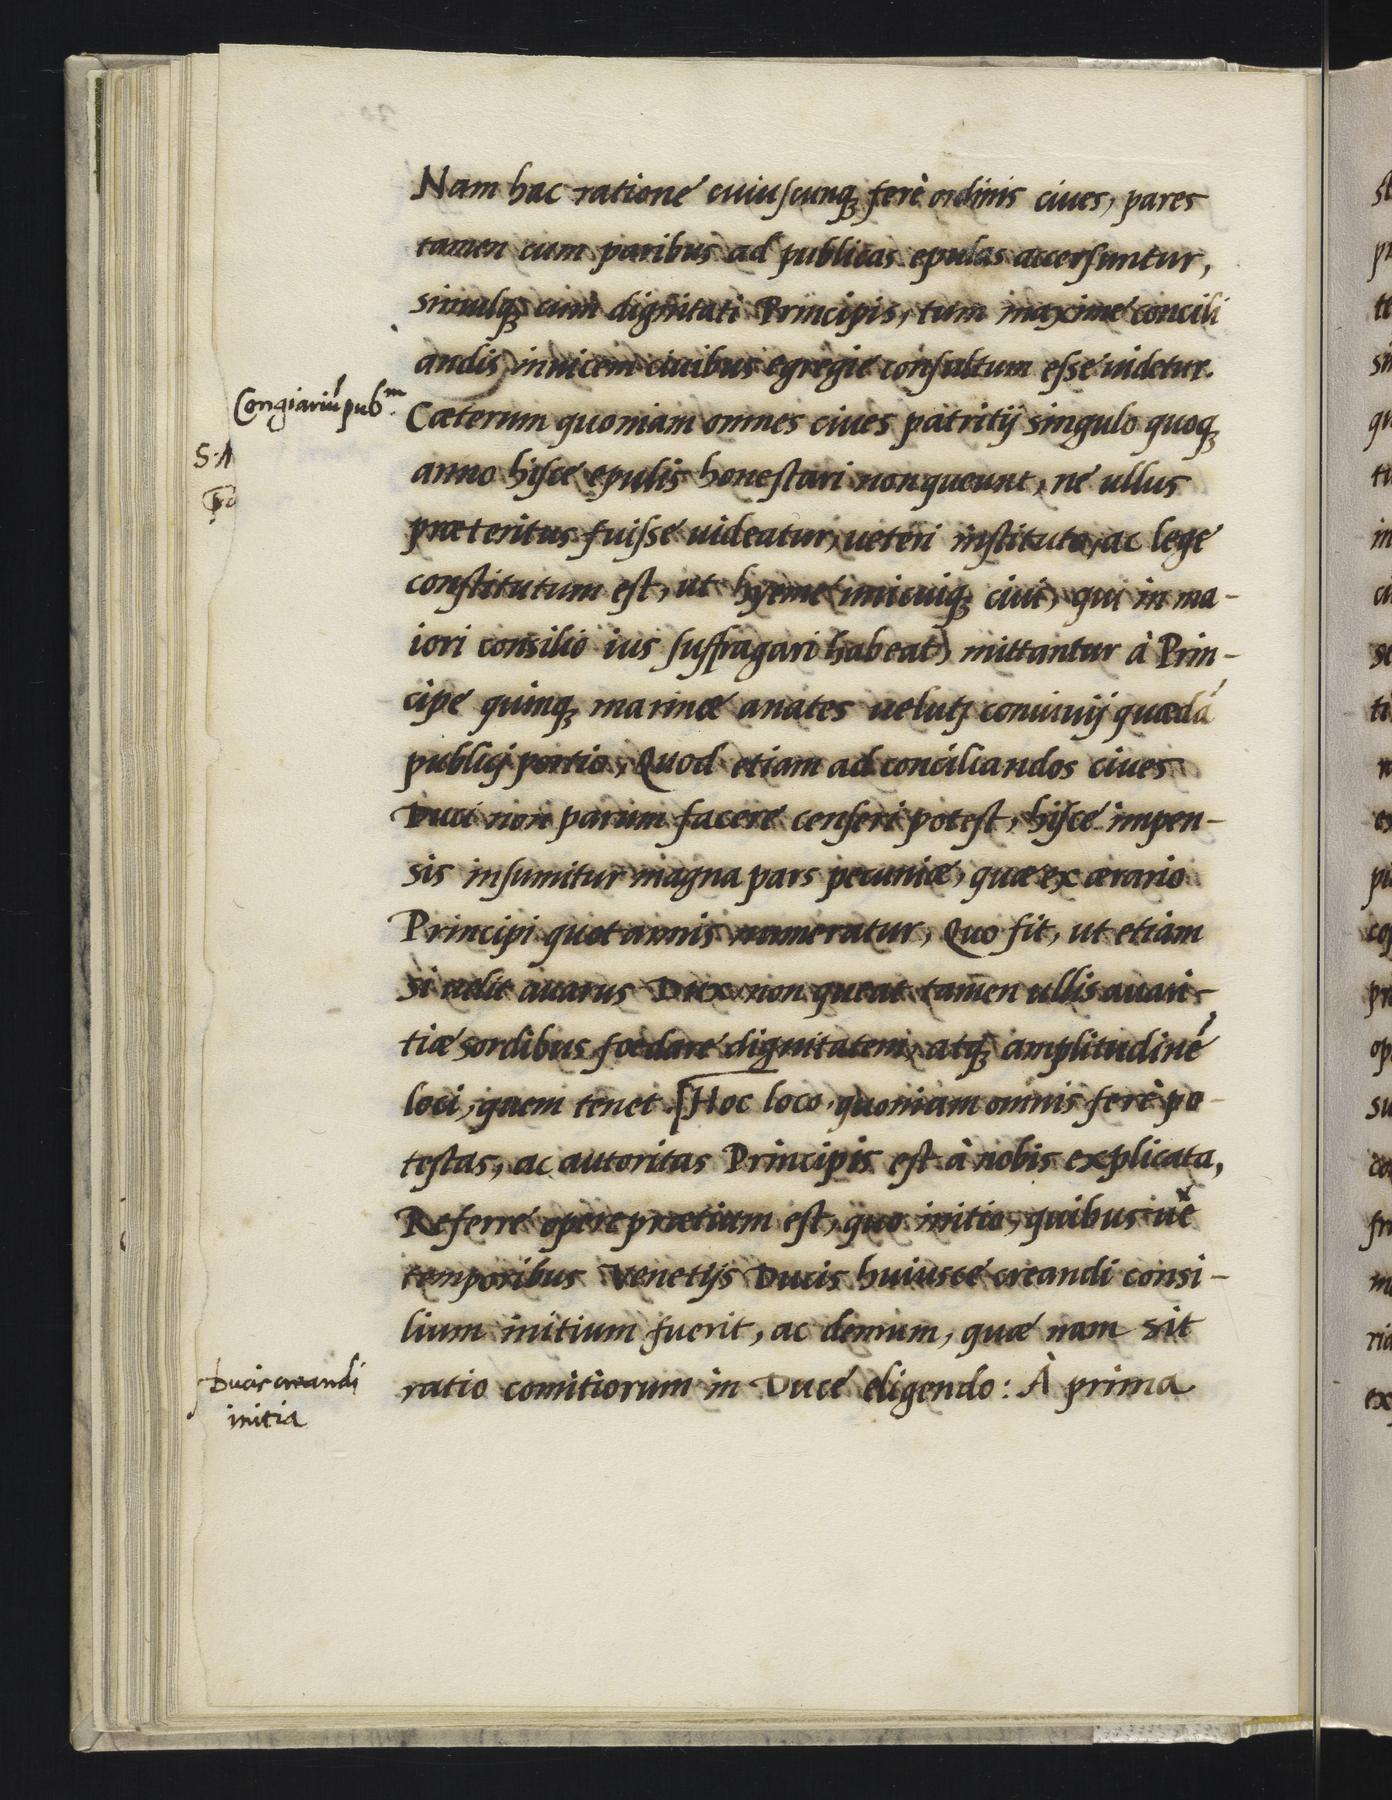 Nam hac ratione cuiuscunq; ferè ordinis ciues, pares
tamen cum paribus ad publicas epulas accersuntur,
simulq; cum dignitati Principis, tum maxime concili
andis inuicem ciuibus egregie consultum esse uidetur.
Congiariũ pub.m
Cæterum quoniam omnes ciues patritij singulo quoq;
anno hisce epulis honestari non queunt, ne ullus
præteritus fuisse uideatur, ueteri instituto, ac lege
constitutum est, ut hyeme unicuiq; ciui, qui in ma-
iori consilio ius suffragari habeat) mittantur à Prin-
cipe quinq; marinæ anates uelutj conuiuij quædã
publicj portio, Quod etiam ad conciliandos ciues
Duci non parum facere censeri potest, hisce impen-
sis insumitur magna pars pecuniæ, quæ ex ærario
Principi quotannis numeratur, Quo fit, ut etiam
si uelit auarus Dux non queat tamen ullis auari-
tiæ sordibus foedare dignitatem, atq; amplitudinẽ
loci, quem tenet. [Hoc loco quoniam omnis ferè po-
testas, ac autoritas Principis est à nobis explicata,
Referre opere prætium est, quo initio, quibus uè
temporibus Venetijs Ducis huiusce creandi consi-
lium initium fuerit, ac demum, quæ nam sit
ratio comitiorum in Duce eligendo: À prima
Ducis creandi
initia